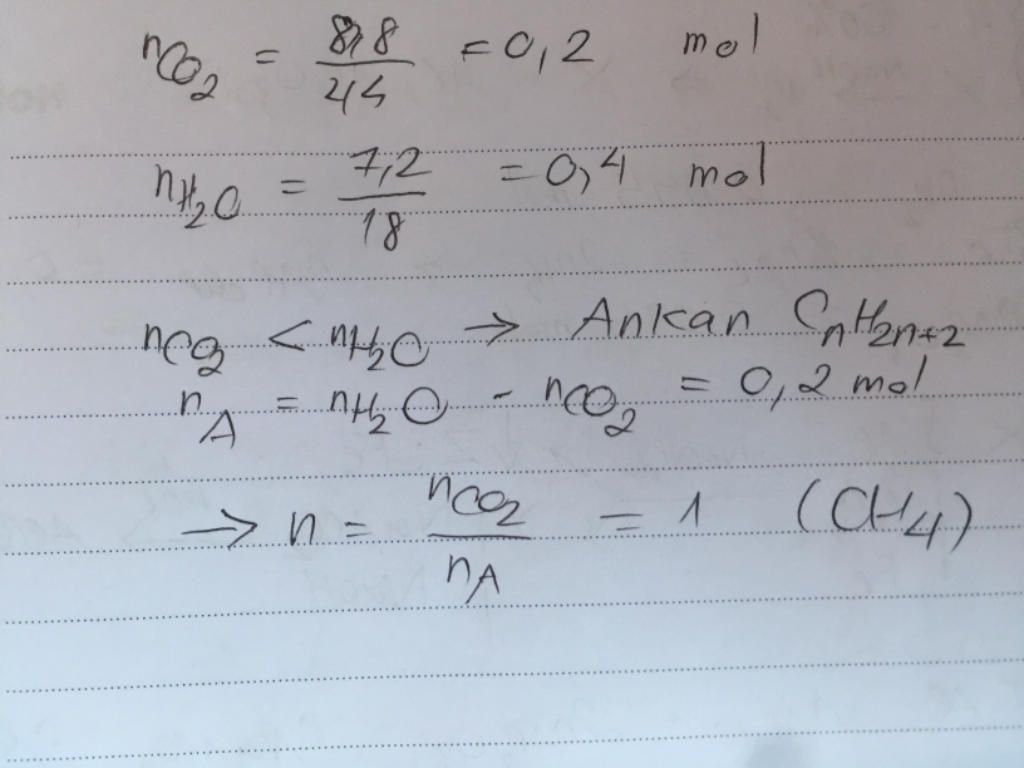 nCO2 = 8,8/44 = 0,2 mol
nH2O = 7,2/18 = 0,4 mol
nCO2 < nH2O → Ankan CnH2n+2
nA = nH2O - nCO2 = 0,2 mol
→ n = nCO2/nA = 1 (CH4)